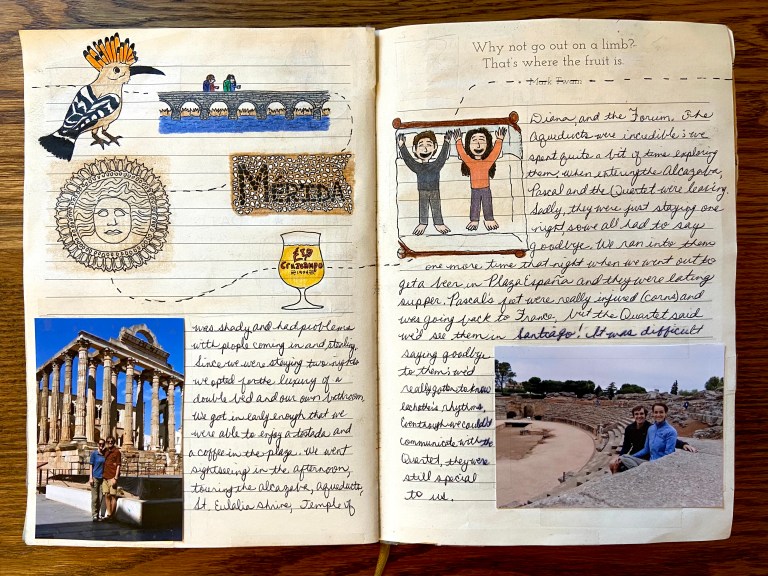 MÉRIDA
Cruzcampo
was shady and had problems
with people coming in and stealing.
Since we were staying two nights
we opted for the luxury of a
double bed and our own bathroom.
We got in early enough that we
were able to enjoy a tostada and
a coffee in the plaza. We went
sightseeing in the afternoon,
touring the alcazaba, aqueducts,
St. Eulalia shrine, Temple of
Why not go out on a limb?
That's where the fruit is.
Mark Twain
Diana, and the Forum. The
Aqueducts were incredible & we
spent quite a bit of time exploring
them. When entering the Alcazaba,
Pascal and the Quartet were leaving.
Sadly, they were just staying one
night, so we all had to say
goodbye. We ran into them
one more time that night when we went out to
get a beer in Plaza España and they were eating
supper. Pascal's feet were really injured (corns) and
was going back to France, but the Quartet said
we'd see them in Santiago! It was difficult
saying goodbye
to them; we'd
really gotten to know
each other's rhythms.
Even though we couldn't
communicate with the
Quartet, they were
still special
to us.